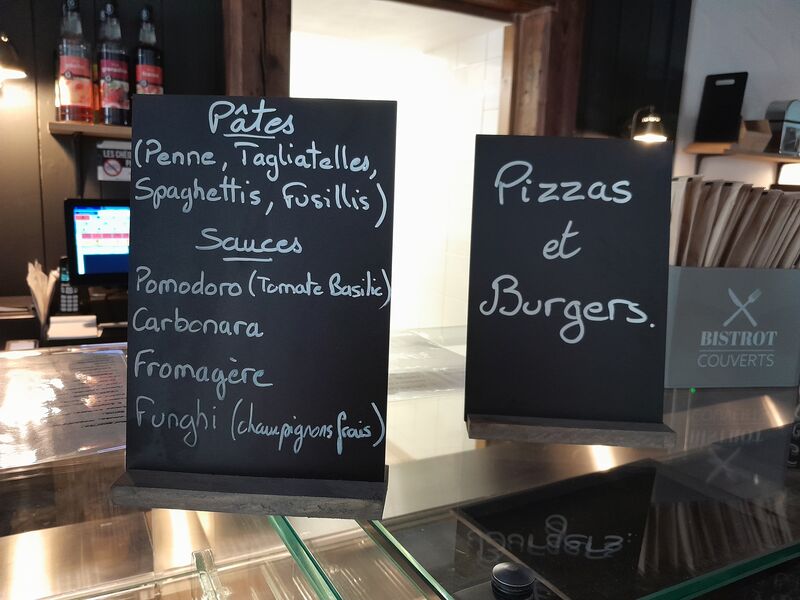 Pâtes
(Penne, Tagliatelles,
Spaghettis, Fusillis)
Sauces
Pomodoro (Tomate Basilic)
Carbonara
Fromagère
Funghi (champignons frais)
Pizzas
et
Burgers.
BISTROT
COUVERTS